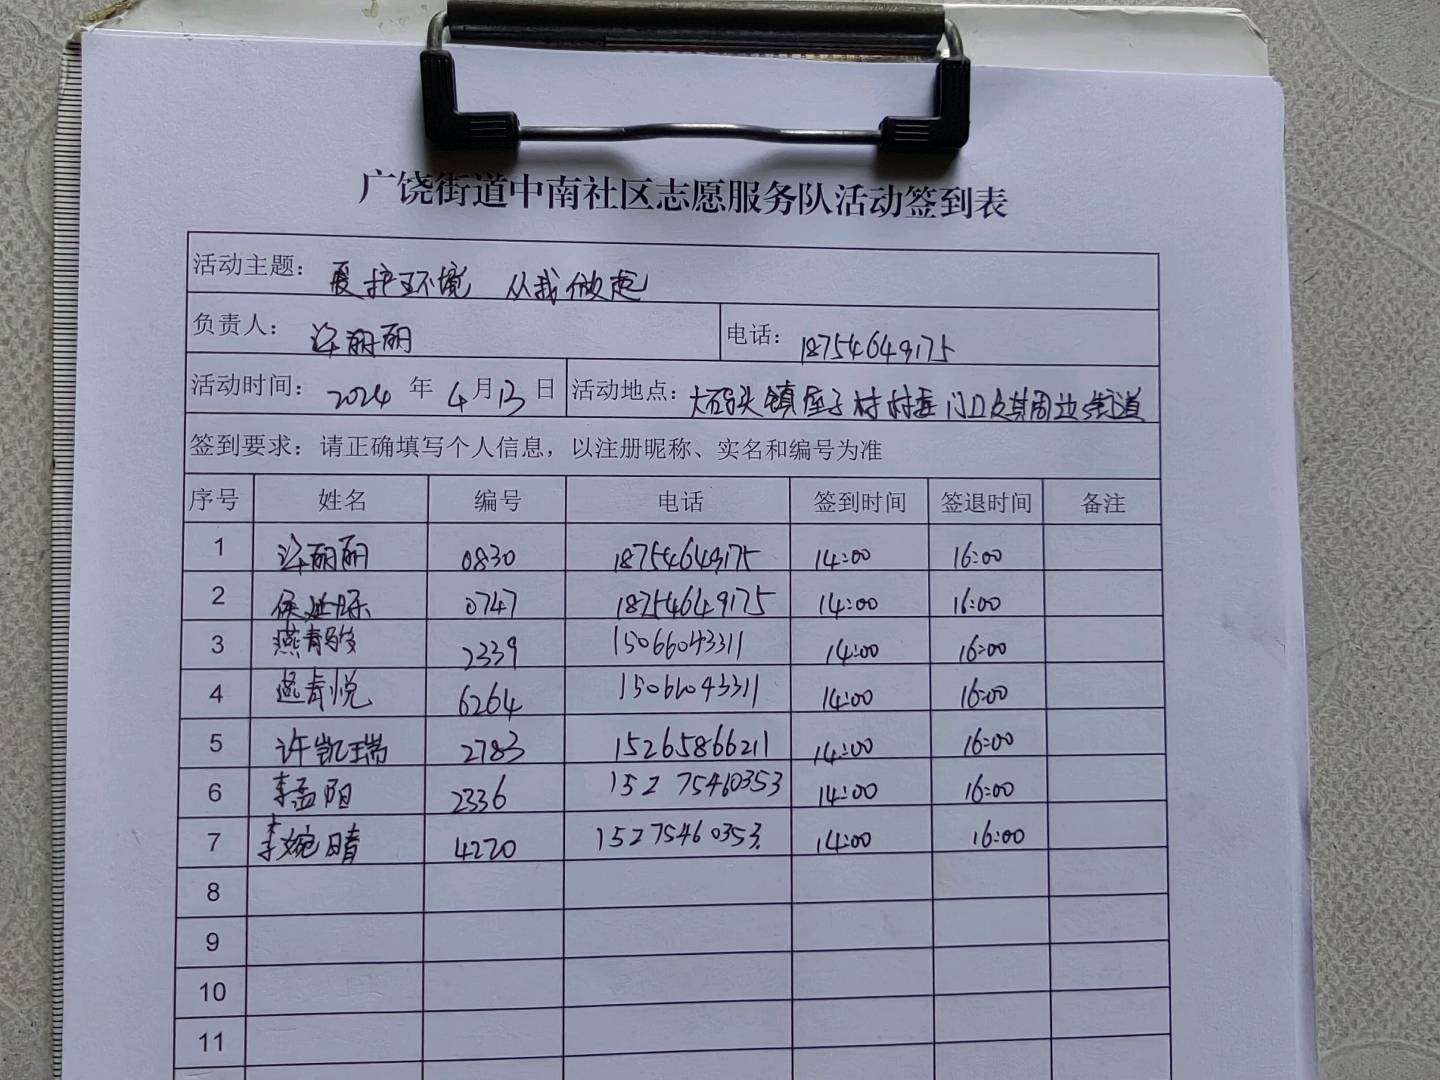 广饶街道中南社区志愿服务队活动签到表
活动主题： 爱护环境 从我做起
负责人： 许丽丽 电话： 18754649175
活动时间： 2024 年 4 月 13 日 活动地点： 大码头镇 村村委门口及其周边街道
签到要求：请正确填写个人信息，以注册昵称、实名和编号为准
序号 姓名 编号 电话 签到时间 签退时间 备注
1 许丽丽 0830 18754649175 14:00 16:00
2 0747 18754649175 14:00 16:00
3 燕青 2339 15066043311 14:00 16:00
4 青悦 6264 15066043311 14:00 16:00
5 许凯瑞 2783 15265866211 14:00 16:00
6 李孟阳 2336 15275460353 14:00 16:00
7 李婉晴 4270 15275460353 14:00 16:00
8
9
10
11